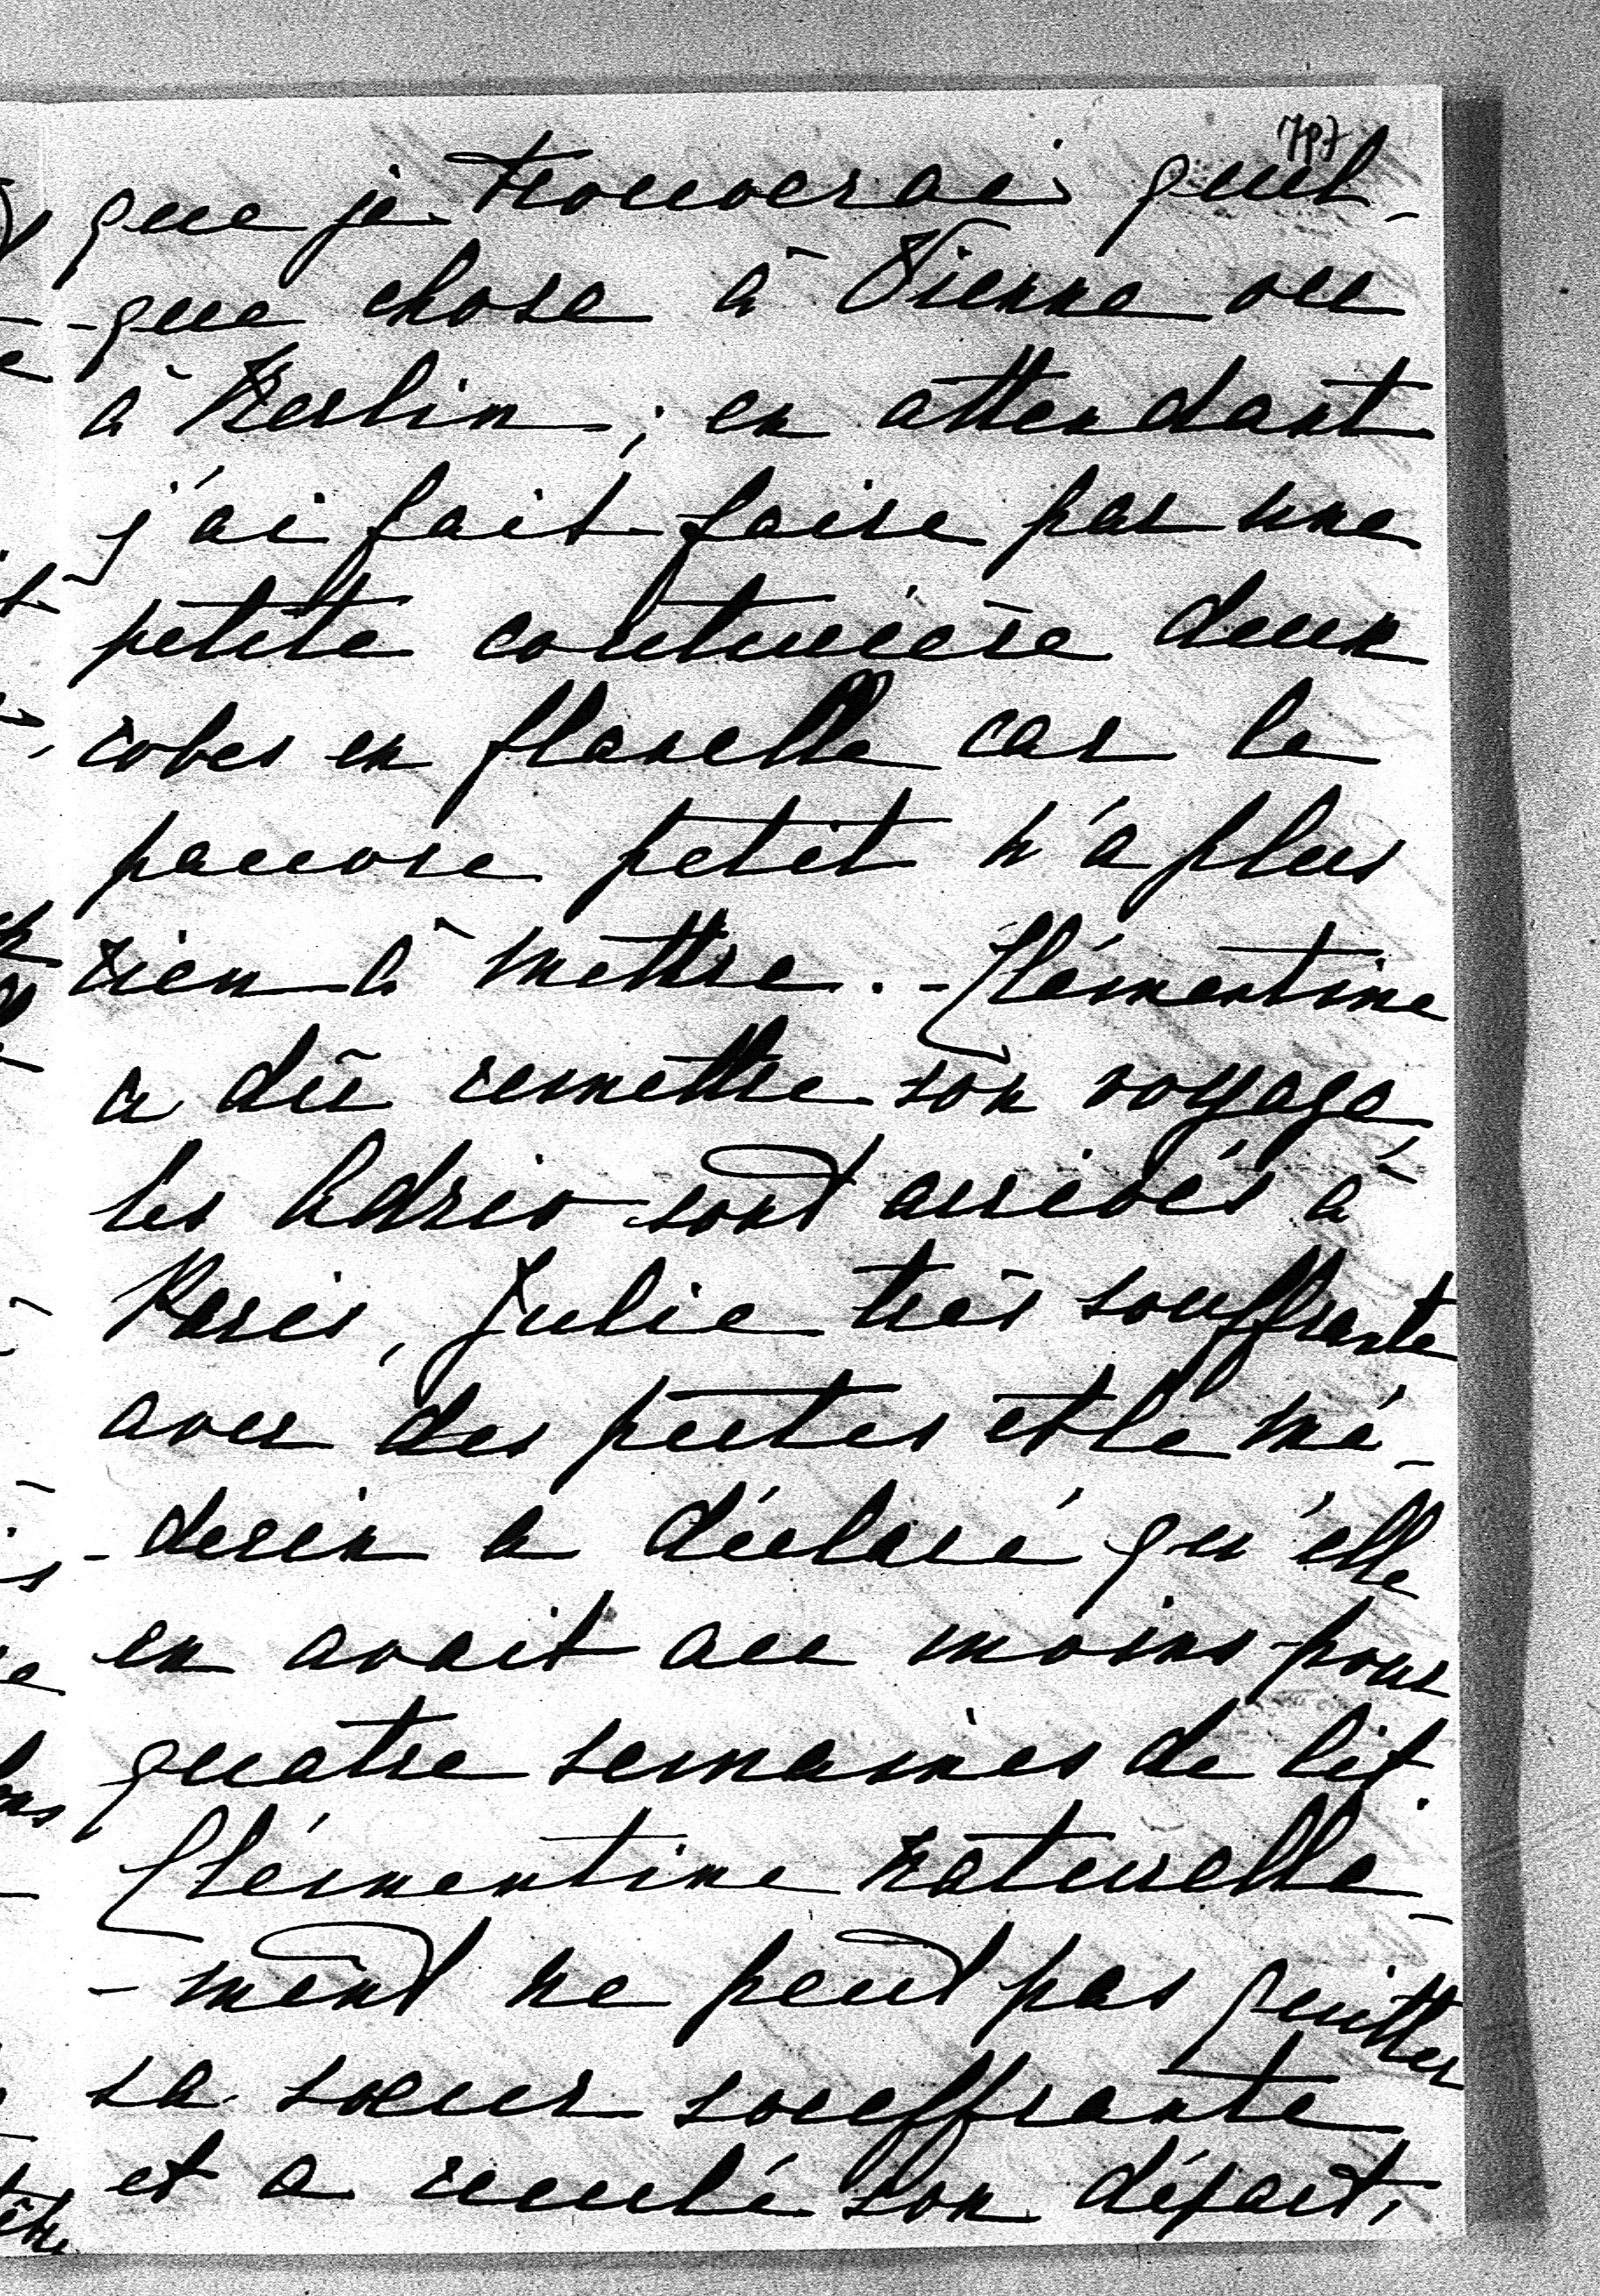 797
que je trouverai quel-
-que chose à Vienne ou
à Berlin; en attendant
j'ai fait faire par une
petite couturière deux
robes en flanelle car le
pauvre petit n'a plus
rien à mettre. - Clémentine
a dû remettre son voyage
les sont arrivés à
Paris, Julie très souffrante
avec des pertes et le mé-
-decin a déclaré qu'elle
en avait au moins pour
quatre semaines de lit.
Clémentine naturelle-
-ment ne peut pas quitter
sa sœur souffrante
et a reculé son départ,